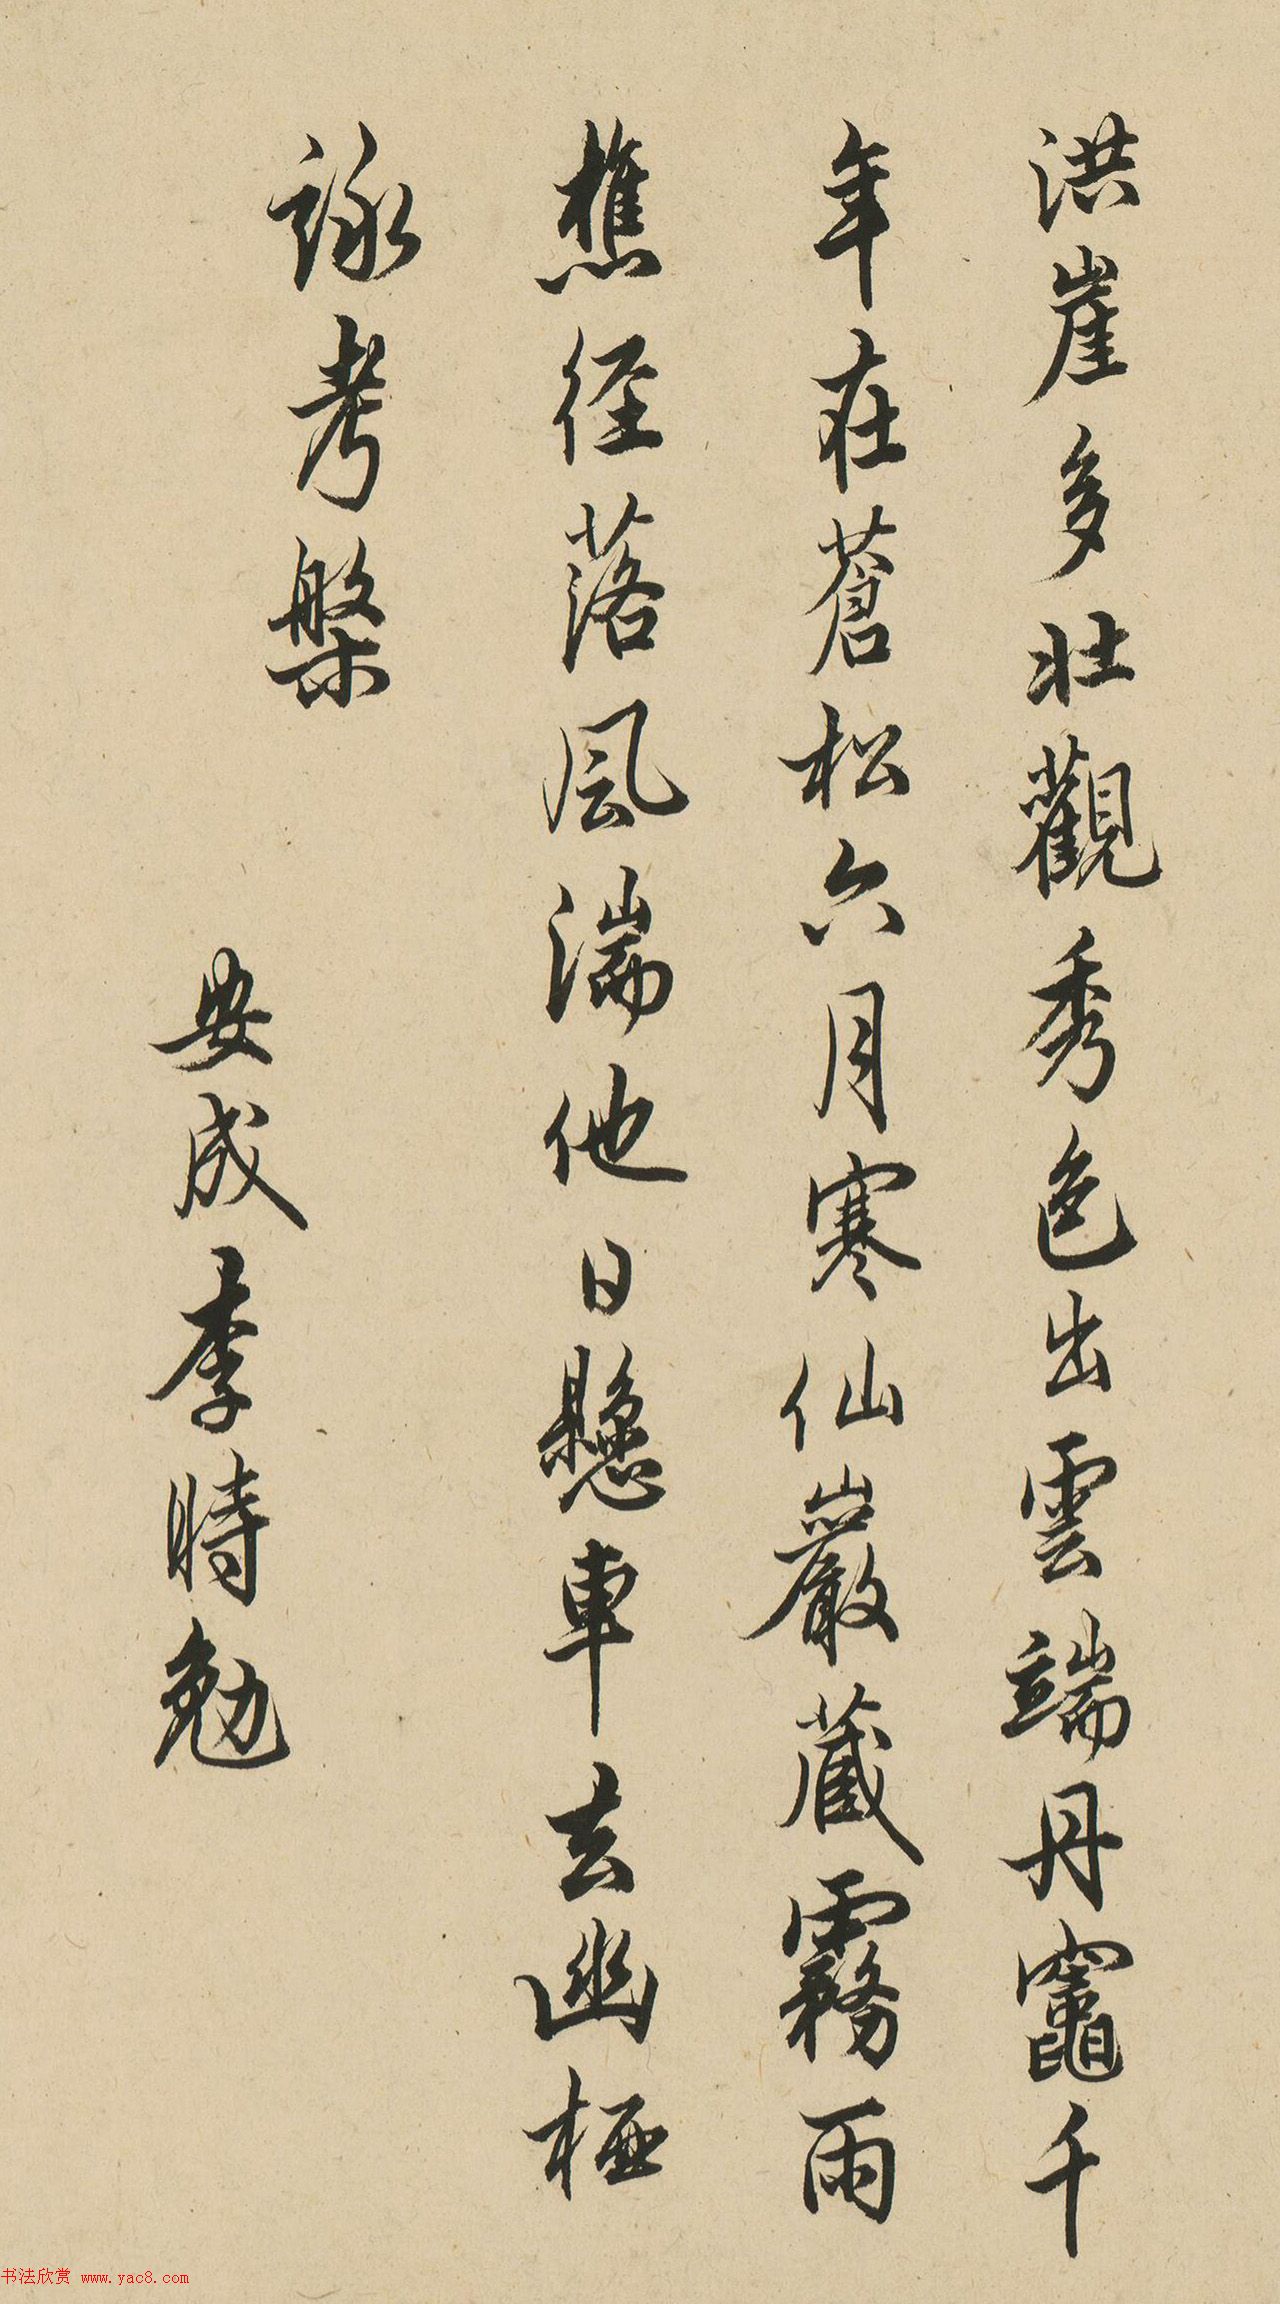 洪崖多壯觀秀色出雲端丹竈千
年在蒼松六月寒仙巖藏霧雨
樵徑落風湍他日懸車去幽極
詠考槃
安成李時勉
书法欣赏 www.yac8.com